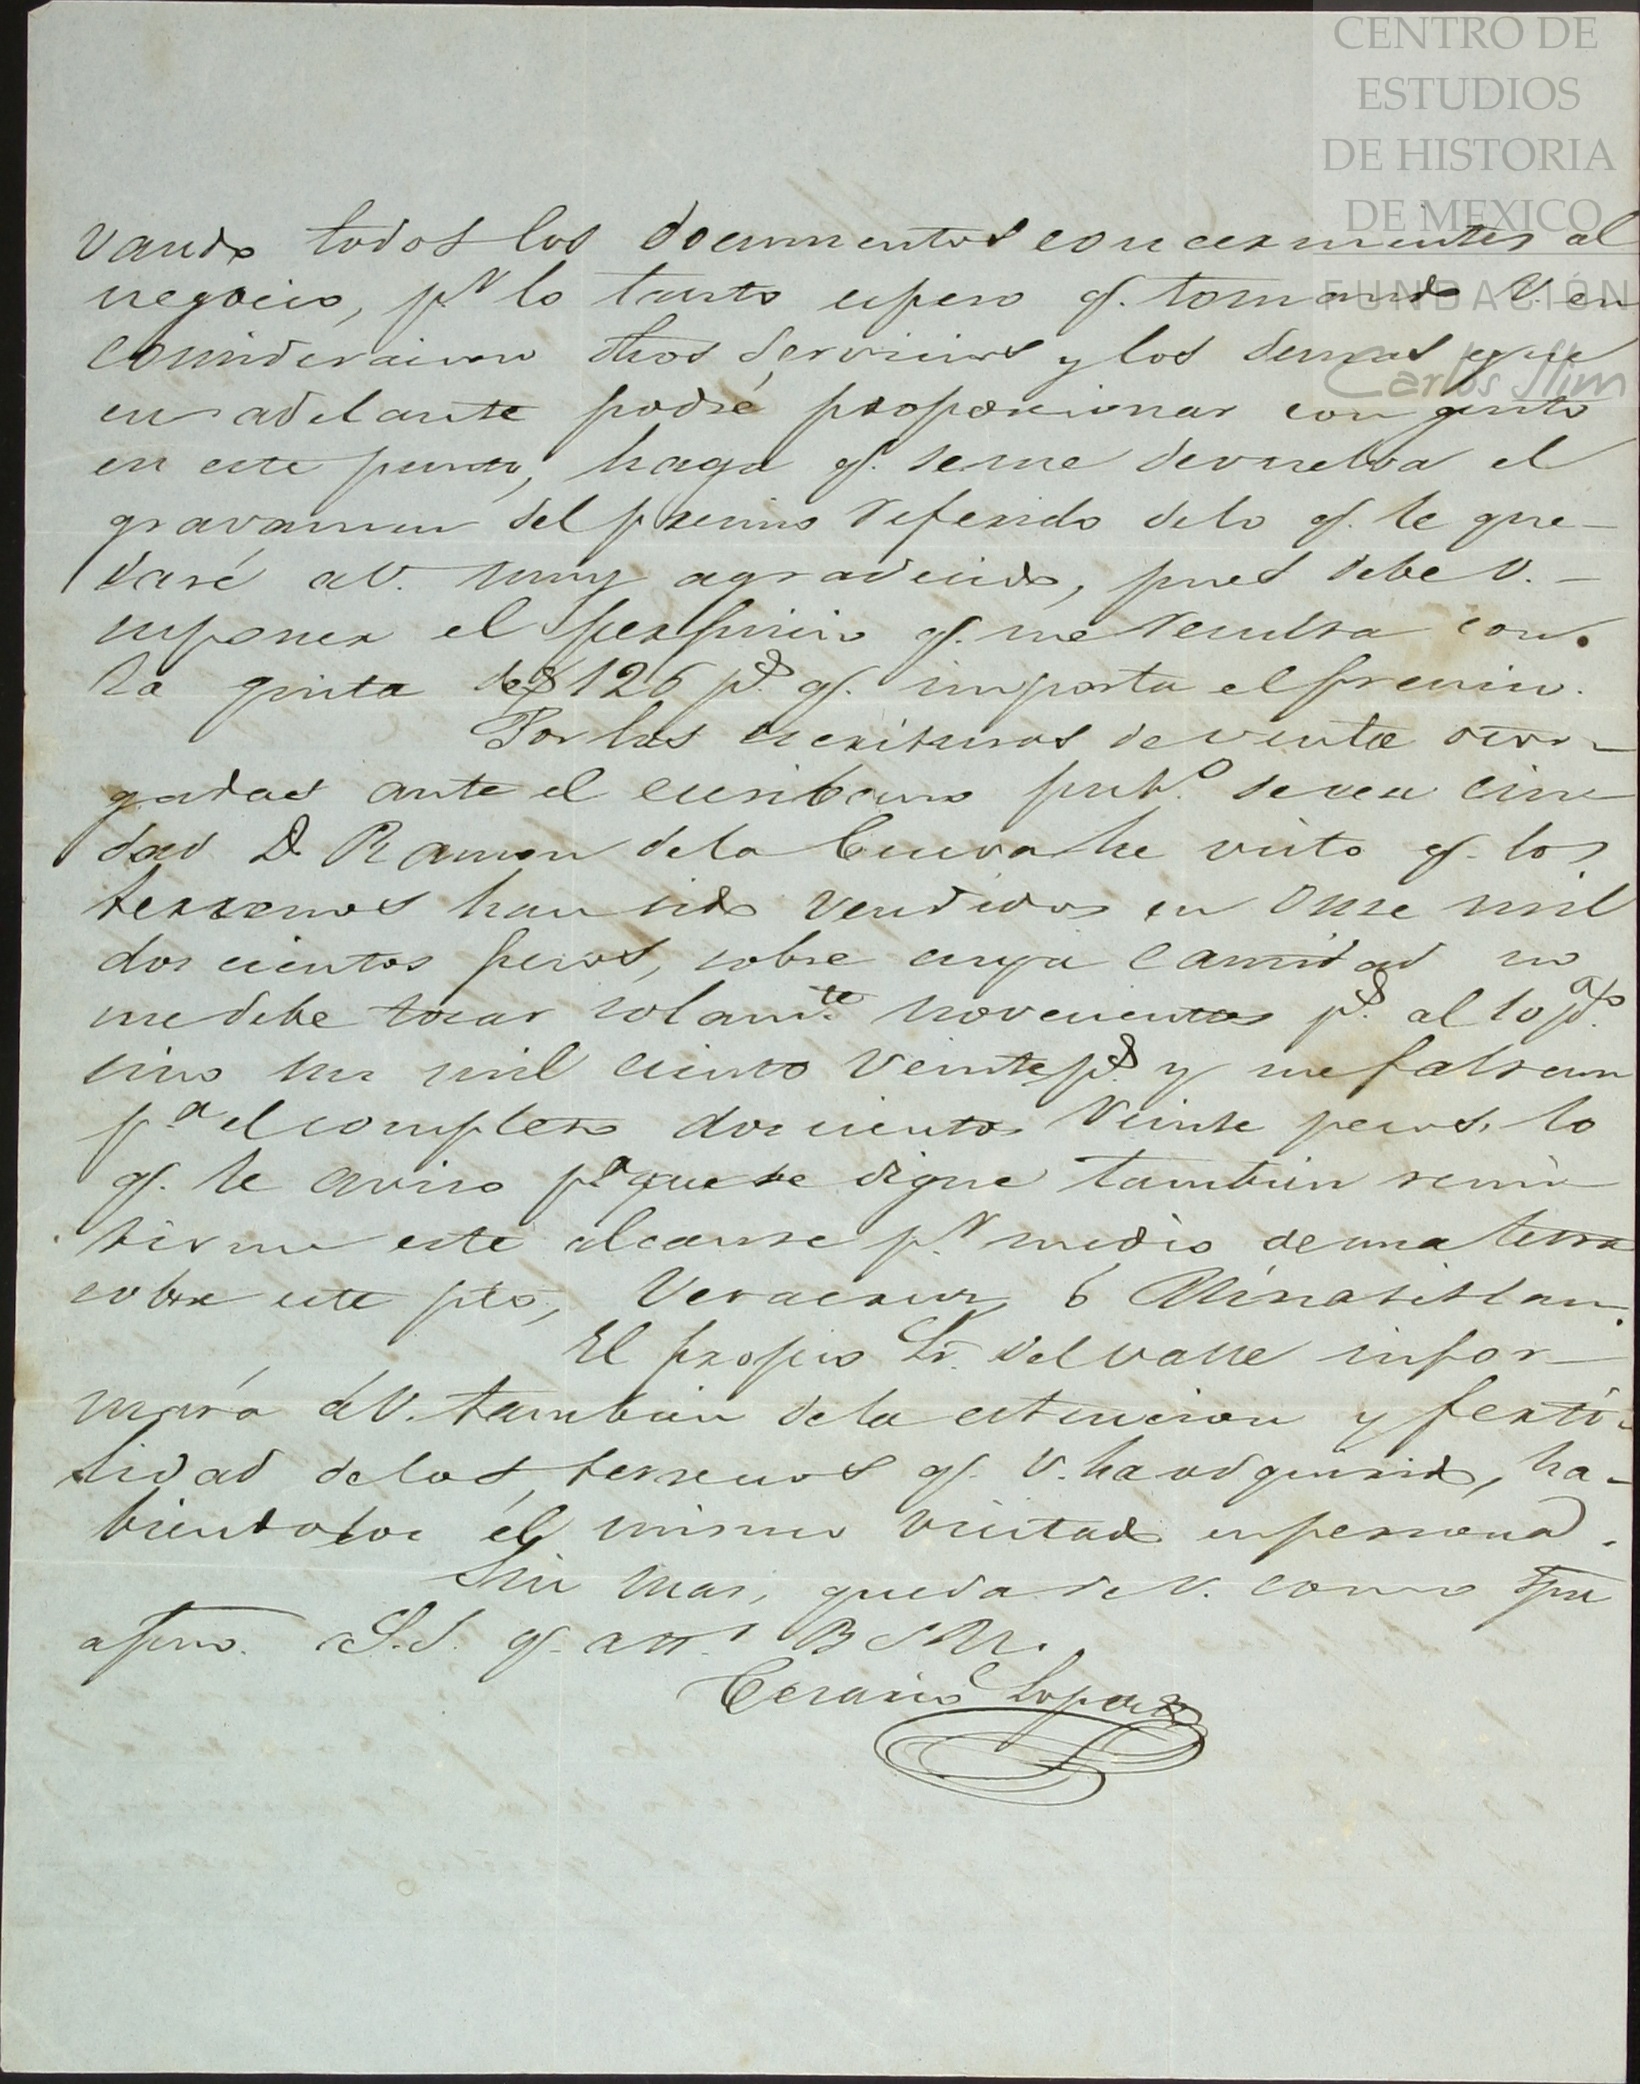 CENTRO DE
ESTUDIOS
DE HISTORIA
DE MEXICO
FUNDACIÓN
Carlos Slim
vando todos los documentos concernientes al
negocio, pr. lo tanto espero q. tomando V. en
consideracion dhos servicios y los demas que
en adelante podré proporcionar con gusto
en este punto, haga q. se me devuelva el
gravamen del premio referido de lo q. le que-
daré a V. muy agradecido, pues debe V. -
suponer el perjuicio q. me resulta con
la quita de $126 ps. q. importa el premio.
Por las escrituras de venta otor-
gadas ante el escribano pubo. de esa ciu
dad D. Ramon de la Cueva he visto q. los
terrenos han sido vendidos en Onse mil
dos cientos pesos, sobre cuya cantidad no
me debe tocar solamte. novecientos ps. al 10 p%
sino un mil ciento veinte ps. y me faltan
pa. el completo doscientos veinte pesos, lo
q. le aviso pa. que se digne tambien remi
tirme este alcanse pr. medio de una letra
sobre este pto, Veracruz ó Minatitlan.
El propio Sr. del Valle infor-
mará á V. tambien de la estencion y ferti-
lidad de los terrenos q. V. ha adquirido, ha-
biendolos él mismo visitado en persona.
Sin mas, queda de V. como spre
afmo. S.S. q. atto. B S M.
Cesario Lopez